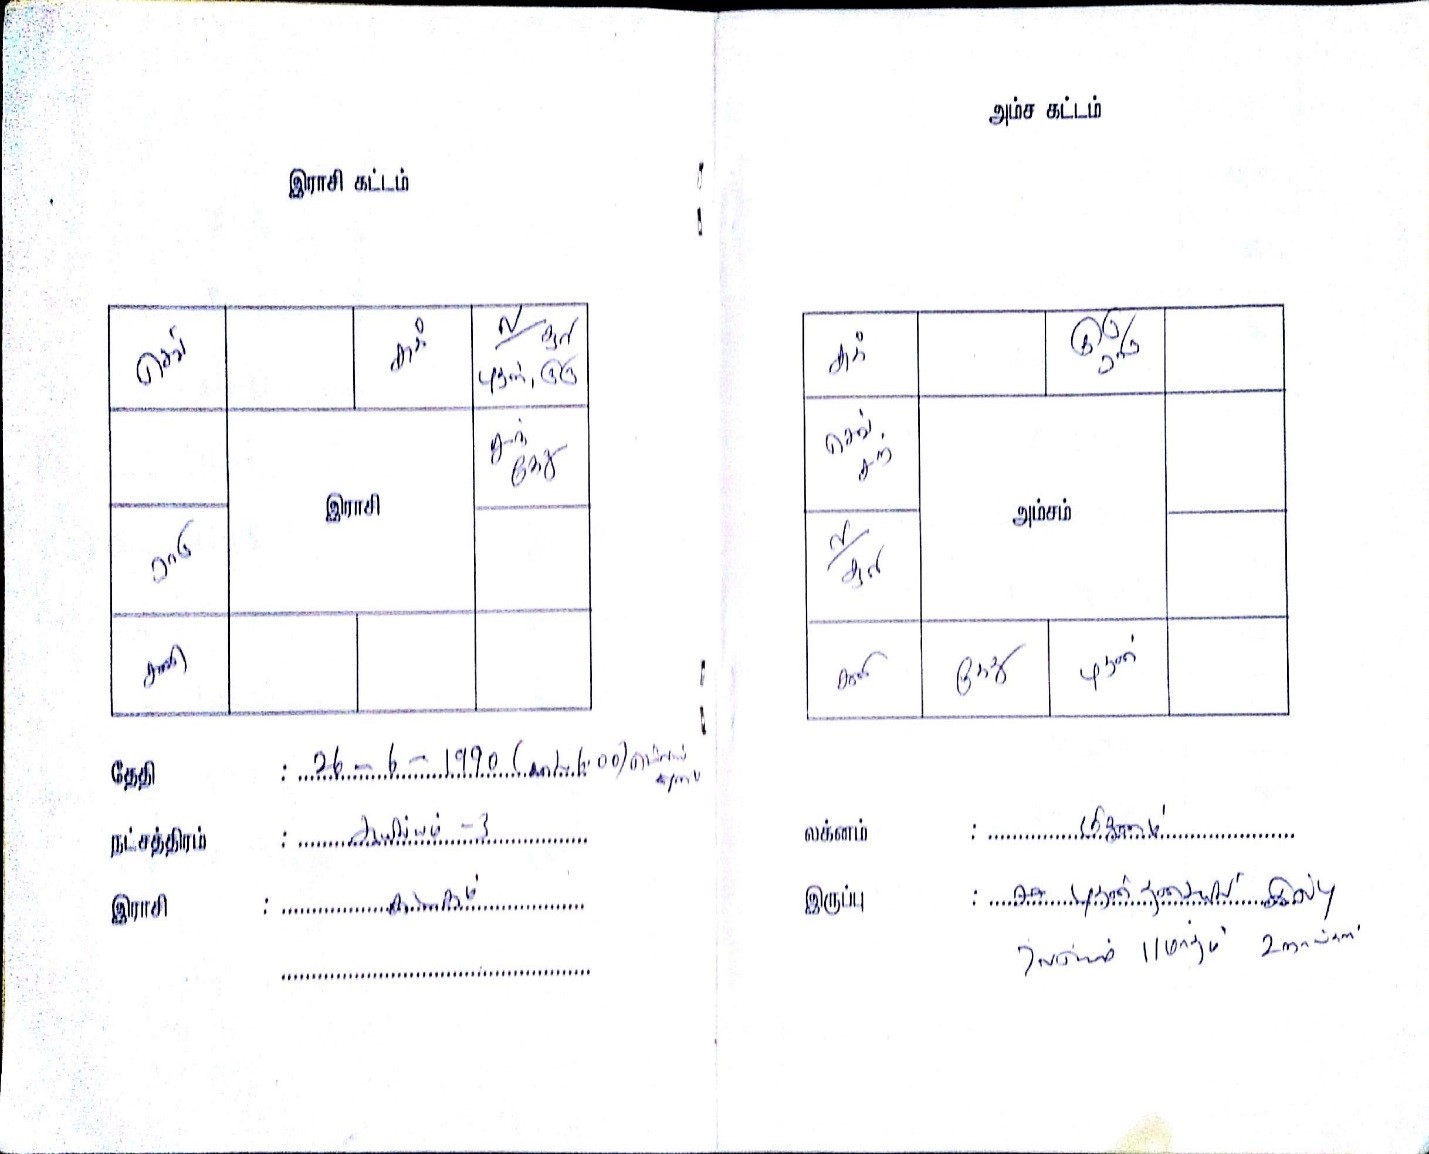 இராசி கட்டம்
செவ்
சுக்
ல/ சூரி
புதன், குரு
சந்
கேது
இராசி
ராகு
சனி
தேதி : 26 - 6 - 1990 ( 6.00)
நட்சத்திரம் : ஆயில்யம் - 3
இராசி : கடகம்
அம்ச கட்டம்
சுக்
குரு
ராகு
செவ்,
சந்
அம்சம்
ல/
சூரி
சனி
கேது
புதன்
லக்னம் : மிதுனம்
இருப்பு : புதன் தசையில் இருப்பு
7 வருடம் 11 மாதம் 2 நாட்கள்